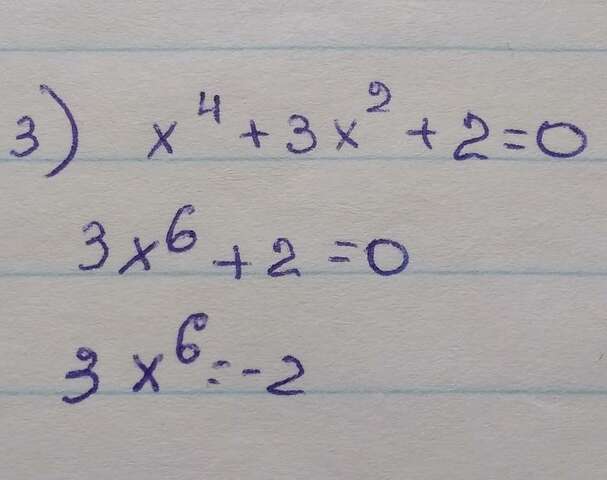 3) x⁴ + 3x² + 2 = 0
3x⁶ + 2 = 0
3x⁶ = -2